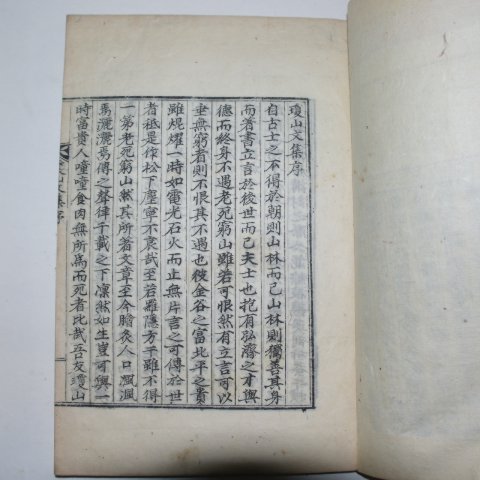 瓊山文集序
自古士之不得於朝則山林而已山林則獨善其身
而著書立言於後世而已夫士也抱有弘濟之才與
德而終身不遇老死窮山雖若可恨然有立言可以
垂無窮者則不恨其不遇也彼金谷之富北平之貴
雖焜燿一時如電光石火而止無片言之可傳於世
者秪是作松下塵寧不哀哉至若羅隱方干雖不得
一第老死窮山然其所著文章至今膾炙人口渢渢
焉灑灑焉傳之聲律千載之下凛然如生豈可與一
時富貴人噇噇食肉無所爲而死者比哉吾友瓊山
文集序